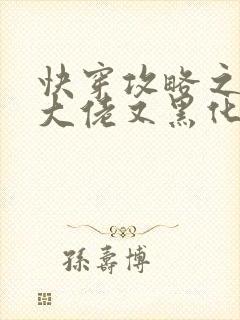 快穿攻略之
大佬又黑化
孫壽博